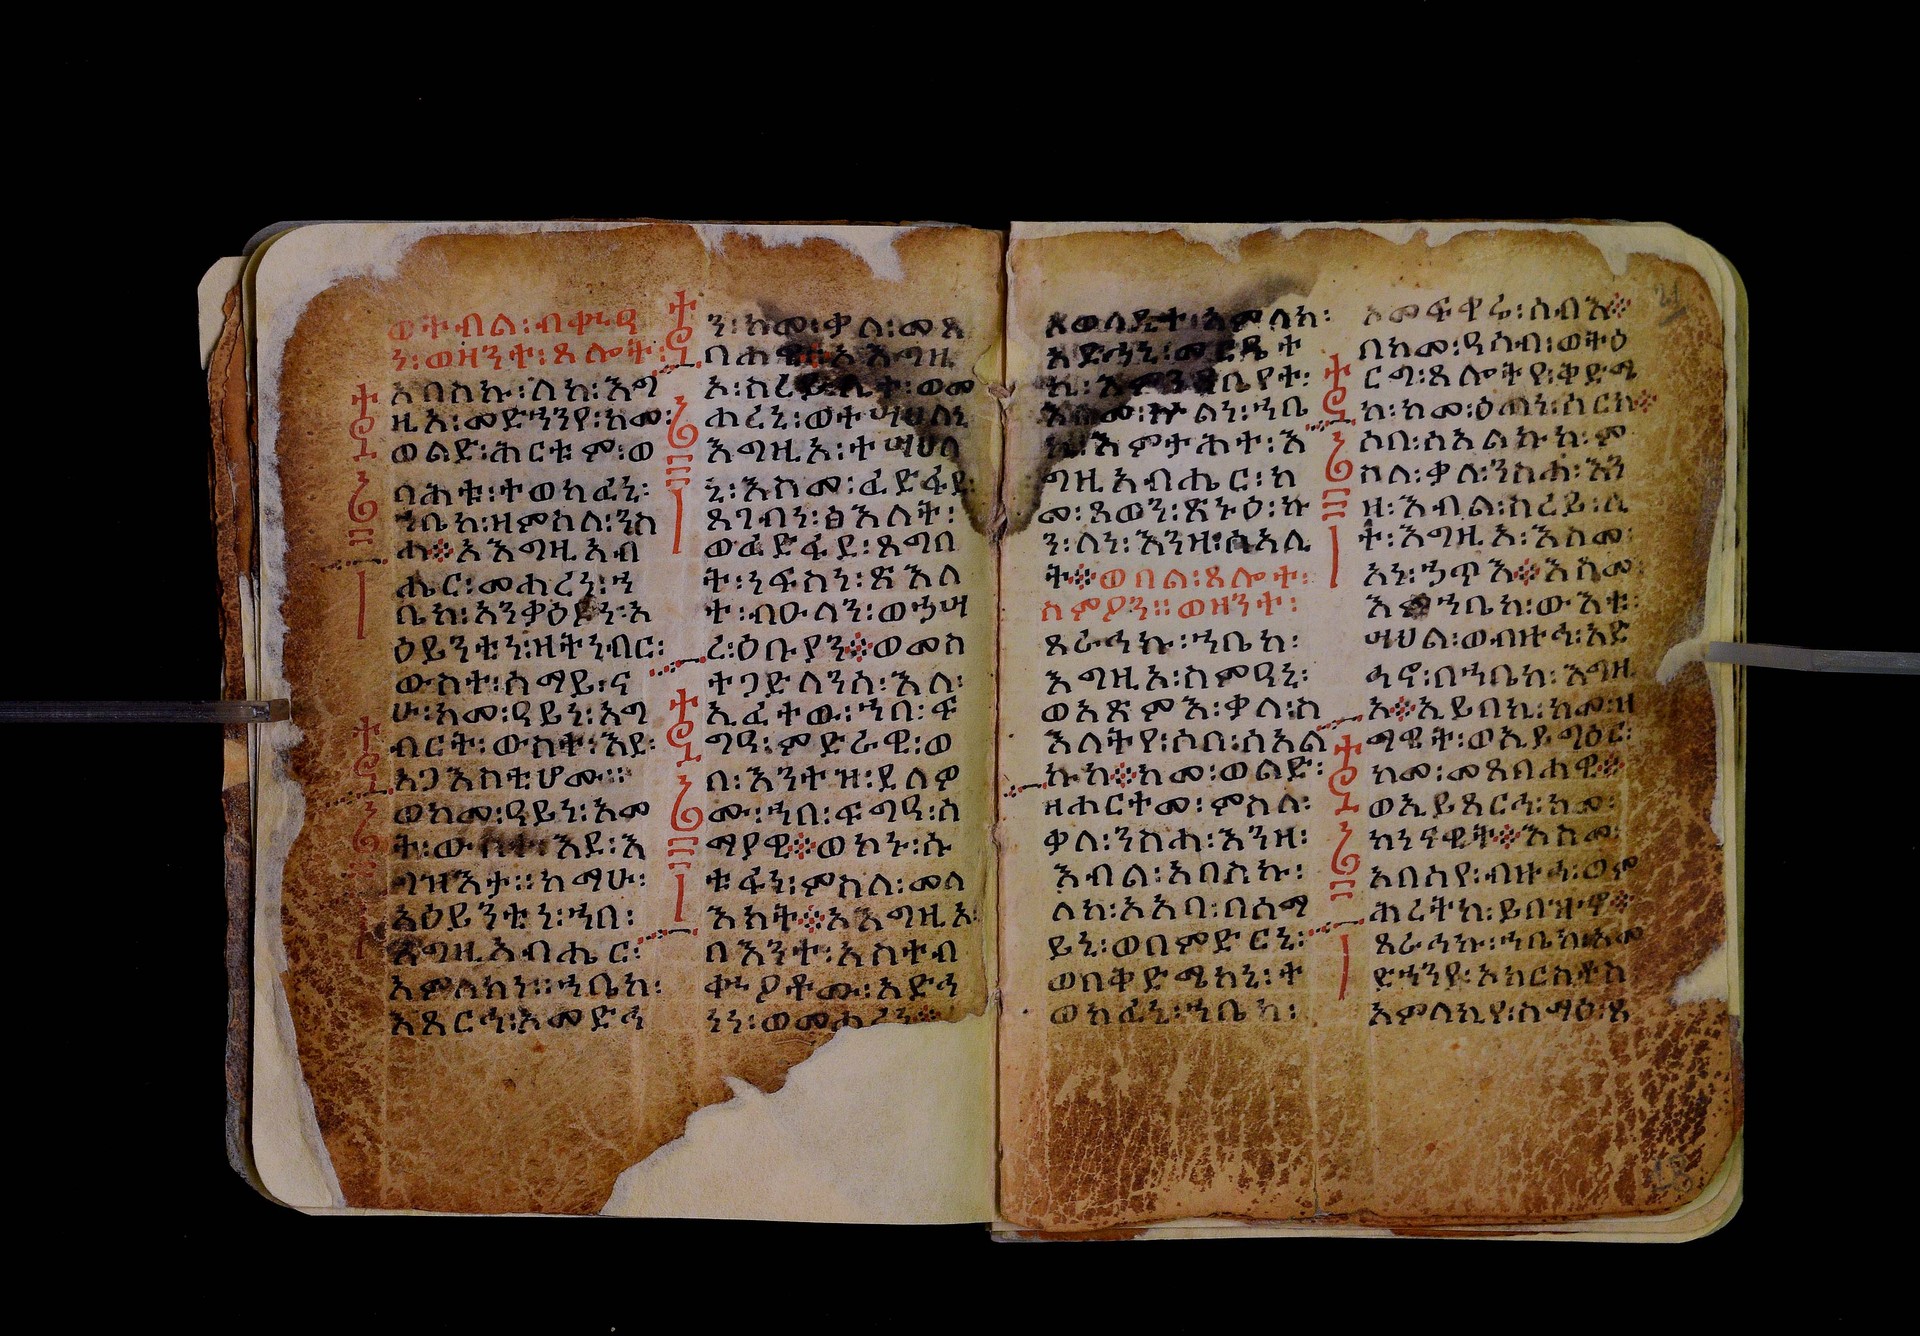 ን፡ወዘንተ፡ጸሎት፡
አበስኩ፡ለከ፡እግ
ዚአ፡መድኀንየ፡ከመ፡
ወልድ፡ሕርቱም፡ወ
ባሕቱ፡ተወከፈኒ፡
ኀቤከ፡ዘምስለ፡ንስ
ሓ፨አእግዚአብ
ሔር፡መሐረነ፡ኀ
ቤከ፡አንቃዕደነ፡አ
ዕይንቲነ፡ዘትነብር፡
ውስተ፡ሰማይ፡ና
ሁ፡ከመ፡ዓይነ፡አግ
ብርት፡ውስተ፡እደ፡
አጋእስቲሆሙ።
ወከመ፡ዓይነ፡አመ
ት፡ውስተ፡እደ፡እ
ግዝእታ።ከማሁ፡
አዕይንቲነ፡ኀበ፡
እግዚአብሔር፡
አምላክነ።ኀቤከ፡
አጸርኅ፡አመድኅ
ን፡ከመ፡ቃለ፡መጸ
ባሐዊ፡አእግዚ
አ፡ስረይ፡ሊተ፡ወመ
ሐረኒ፡ወተሣሀለኒ
እግዚአ፡ተሣሀለ
ኒ፡እስመ፡ፈድፋደ፡
ጸገብነ፡ፅእለት፡
ወፈድፋደ፡ጸግበ
ት፡ነፍስነ፡ጽእለ
ት፡ብዑላን፡ወኃሣ
ረ፡ዕቡያን፨ወመስ
ተጋድላንሰ፡እለ፡
ኢፈተው፡ኀበ፡ፍ
ግዓ፡ምድራዊ፡ወ
በ፡እንተዝ፡ይለዎ
ሙ፡ኀበ፡ፍግዓ፡ሰ
ማያዊ፨ወኮኑ፡ሱ
ቱፋነ፡ምስለ፡መላ
እክት፨አእግዚአ፡
በእንተ፡አስተብ
ቍዖቶሙ፡አድኅ
ነነ፡ወመሐረነ፨
ጸወላዲተ፡አምላክ፡
ግዚአብሔር፡ከ
መ፡ጸወነ፡ጽኑዕ፡ኩ
ን፡ለነ፡እንዘ፡ስአሊ
ት፨ወበል፡ጸሎተ፡
ስምዖን።ወዘንተ፡
ጸራኅኩ፡ኀቤከ፡
እግዚአ፡ስምዓኒ፡
ወአጽምእ፡ቃለ፡ስ
እለትየ፡ሶበ፡ሰአል
ኩከ፨ከመ፡ወልድ፡
ዘሐርተመ፡ምስለ፡
ቃለ፡ንስሐ፡እንዘ፡
እብል፡አበስኩ፡
ለከ፡አአባ፡በሰማ
ይኒ፡ወበምድርኒ፡
ወበቅድሜከኒ፡ተ
ወከፈኒ፡ኀቤከ፡
አመፍቀሬ፡ሰብእ፨
በከመ፡ዳዊብ፡ወትዕ
ርግ፡ጸሎትየ፡ቅድሜ
ከ፡ከመ፡ዕጣነ፡ሰርክ፨
ሶበ፡ሰአልኩከ፡ም
ስለ፡ቃለ፡ንስሐ፡እን
ዘ፡እብል፡ስረይ፡ሊ
ተ፡እግዚአ፡እስመ፡
አነ፡ኃጥእ፨እስመ፡
እምኀቤከ፡ውእቱ፡
ሣህል፡ወብዙኅ፡አድ
ኅኖ፡በኀቤከ፡እግዚ
አ፨ኢይበኪ፡ከመ፡ዘ
ማዊት፡ወኢይግዕር፡
ከመ፡መጸብሐዊ፨
ወኢይጸርኅ፡ከመ፡
ከነናዊት፨እስመ፡
አበስየ፡ብዙኅ፡ወም
ሕረትከ፡ይበዝኅ፨
ጸራኅኩ፡ኀቤከ፡አመ
ድኀንየ፡አክርስቶስ
አምላኪየ፡ስማዕ፡ጸ